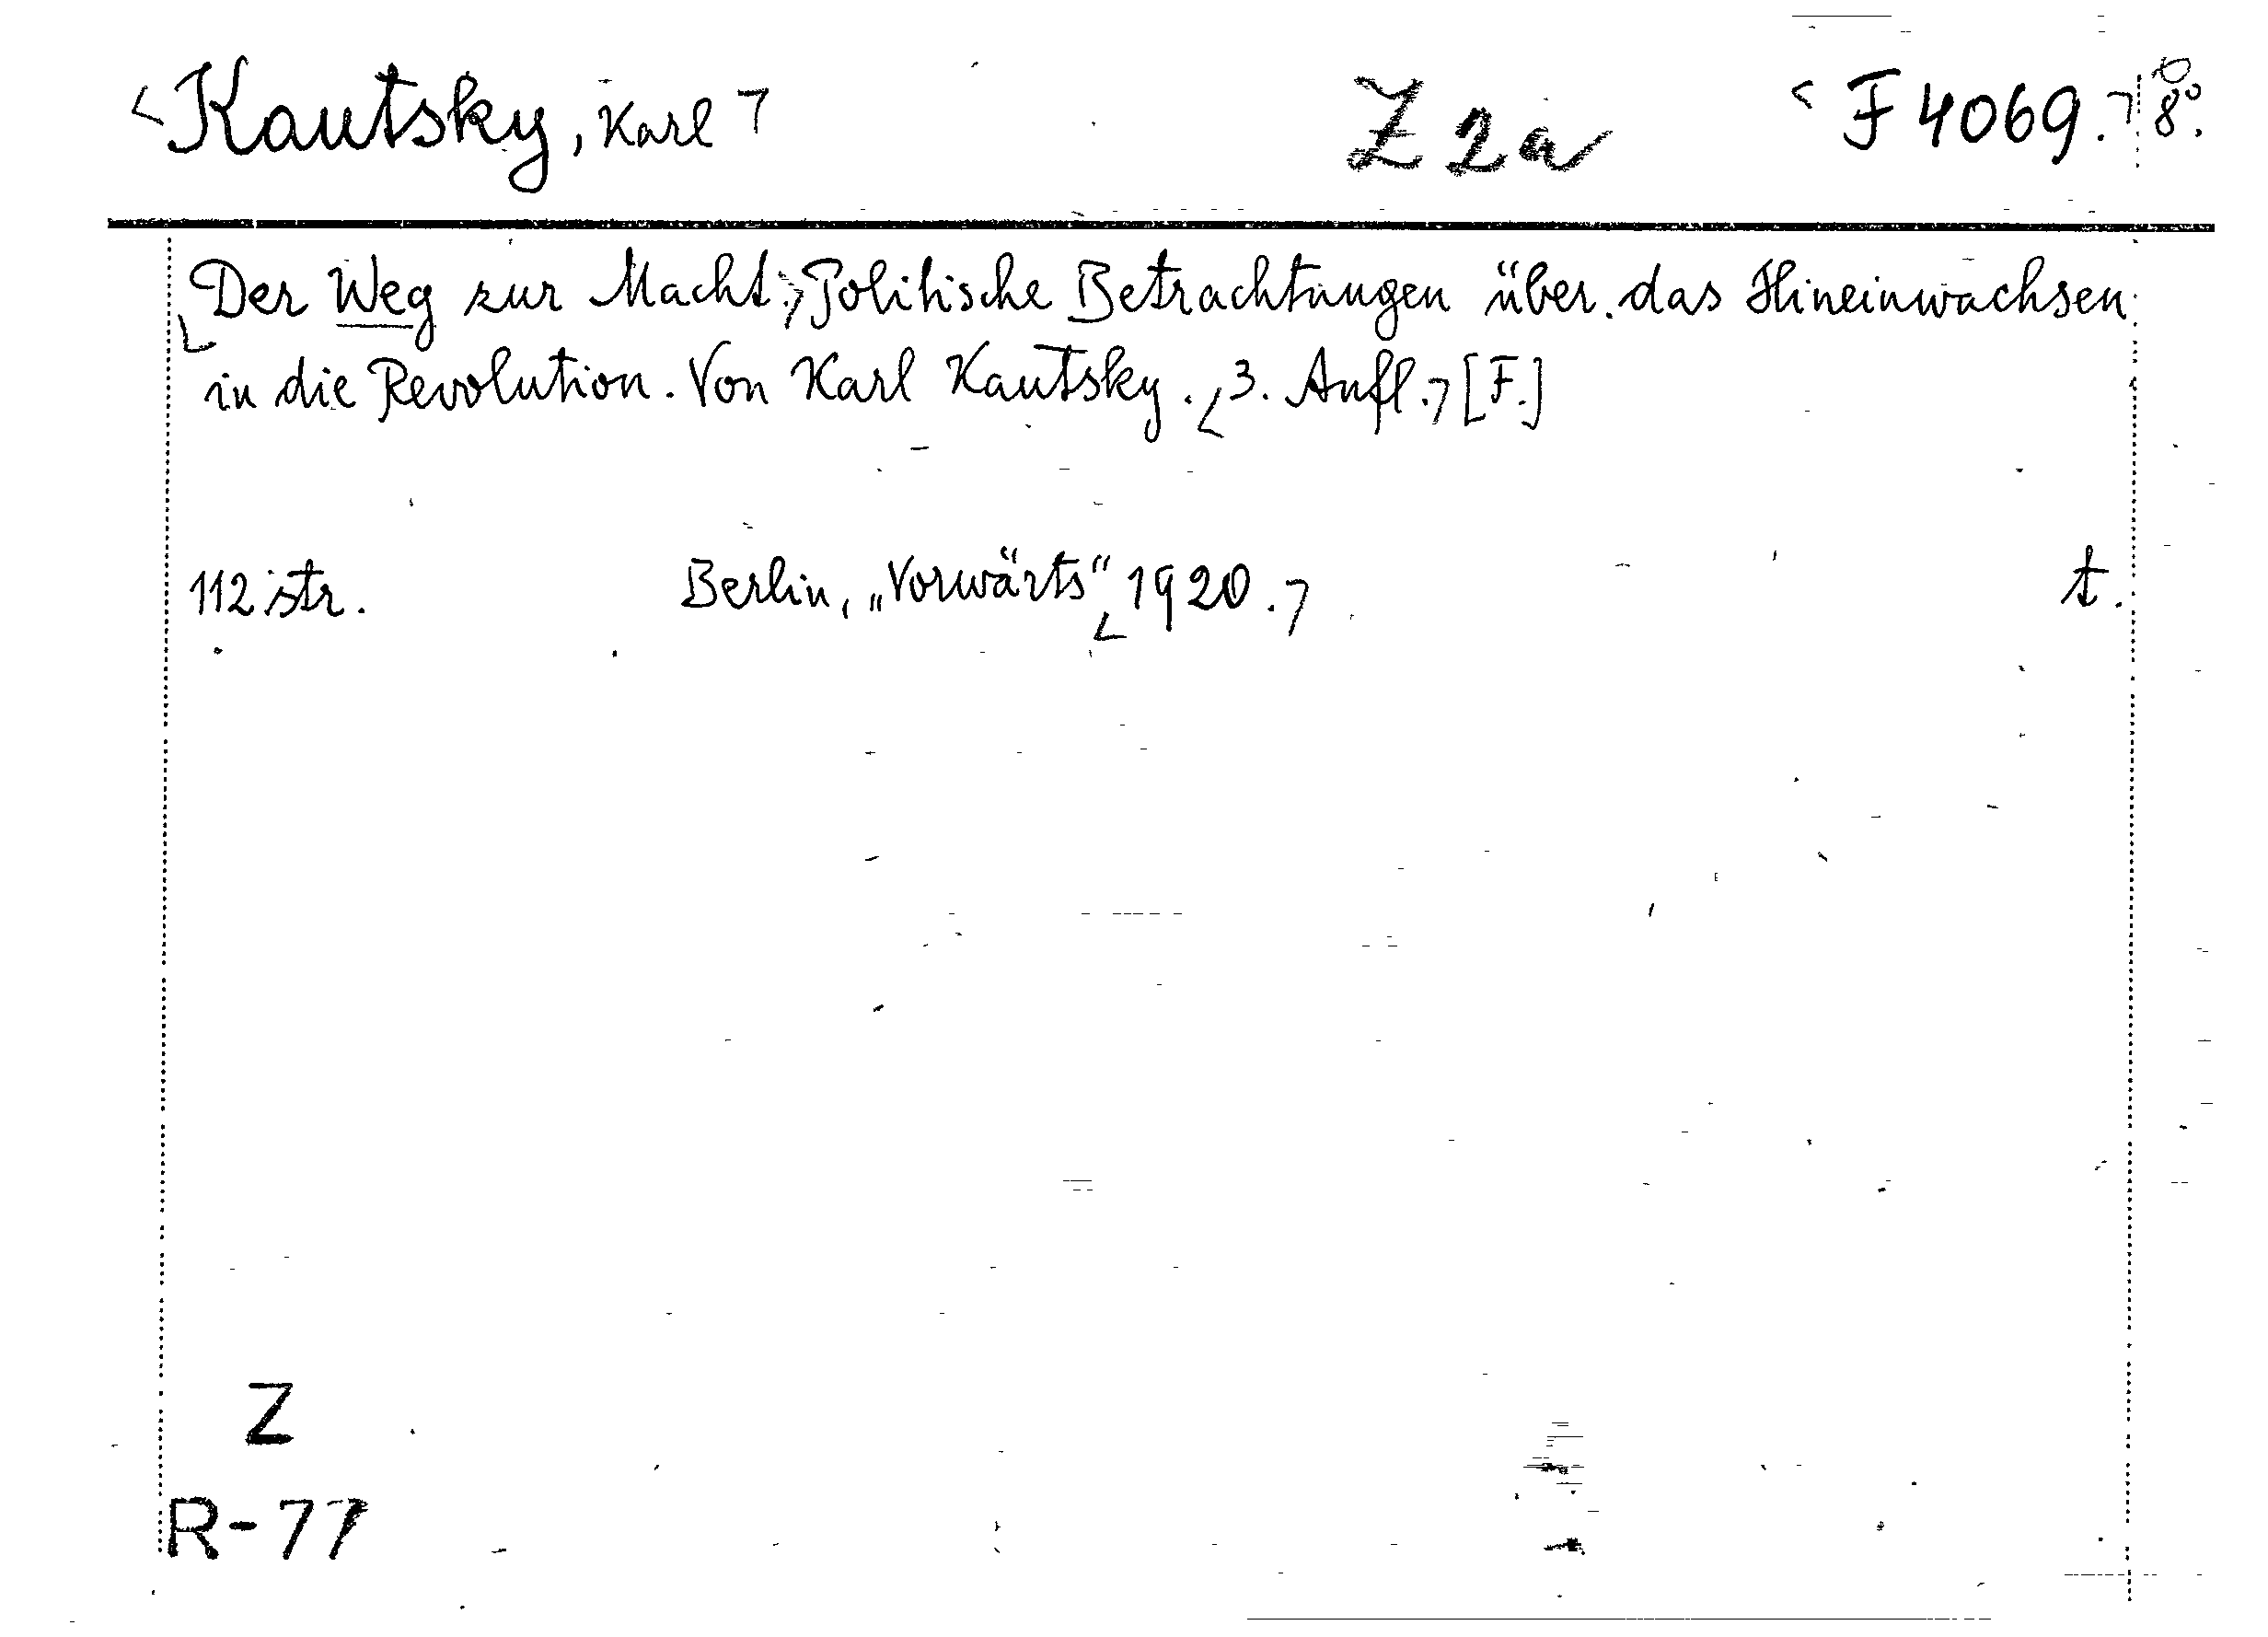 Kautsky, Karl Z 2a F 4069. 8º.
Der Weg zur Macht; Politische Betrachtungen über das Hineinwachsen
in die Revolution. Von Karl Kautsky. 3. Aufl. [F.]
112 str. Berlin, „Vorwärts“ 1920. t.
Z
R-77